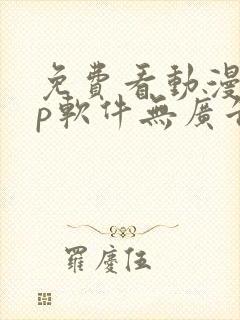 免費看動漫
p軟件無廣
羅慶伍